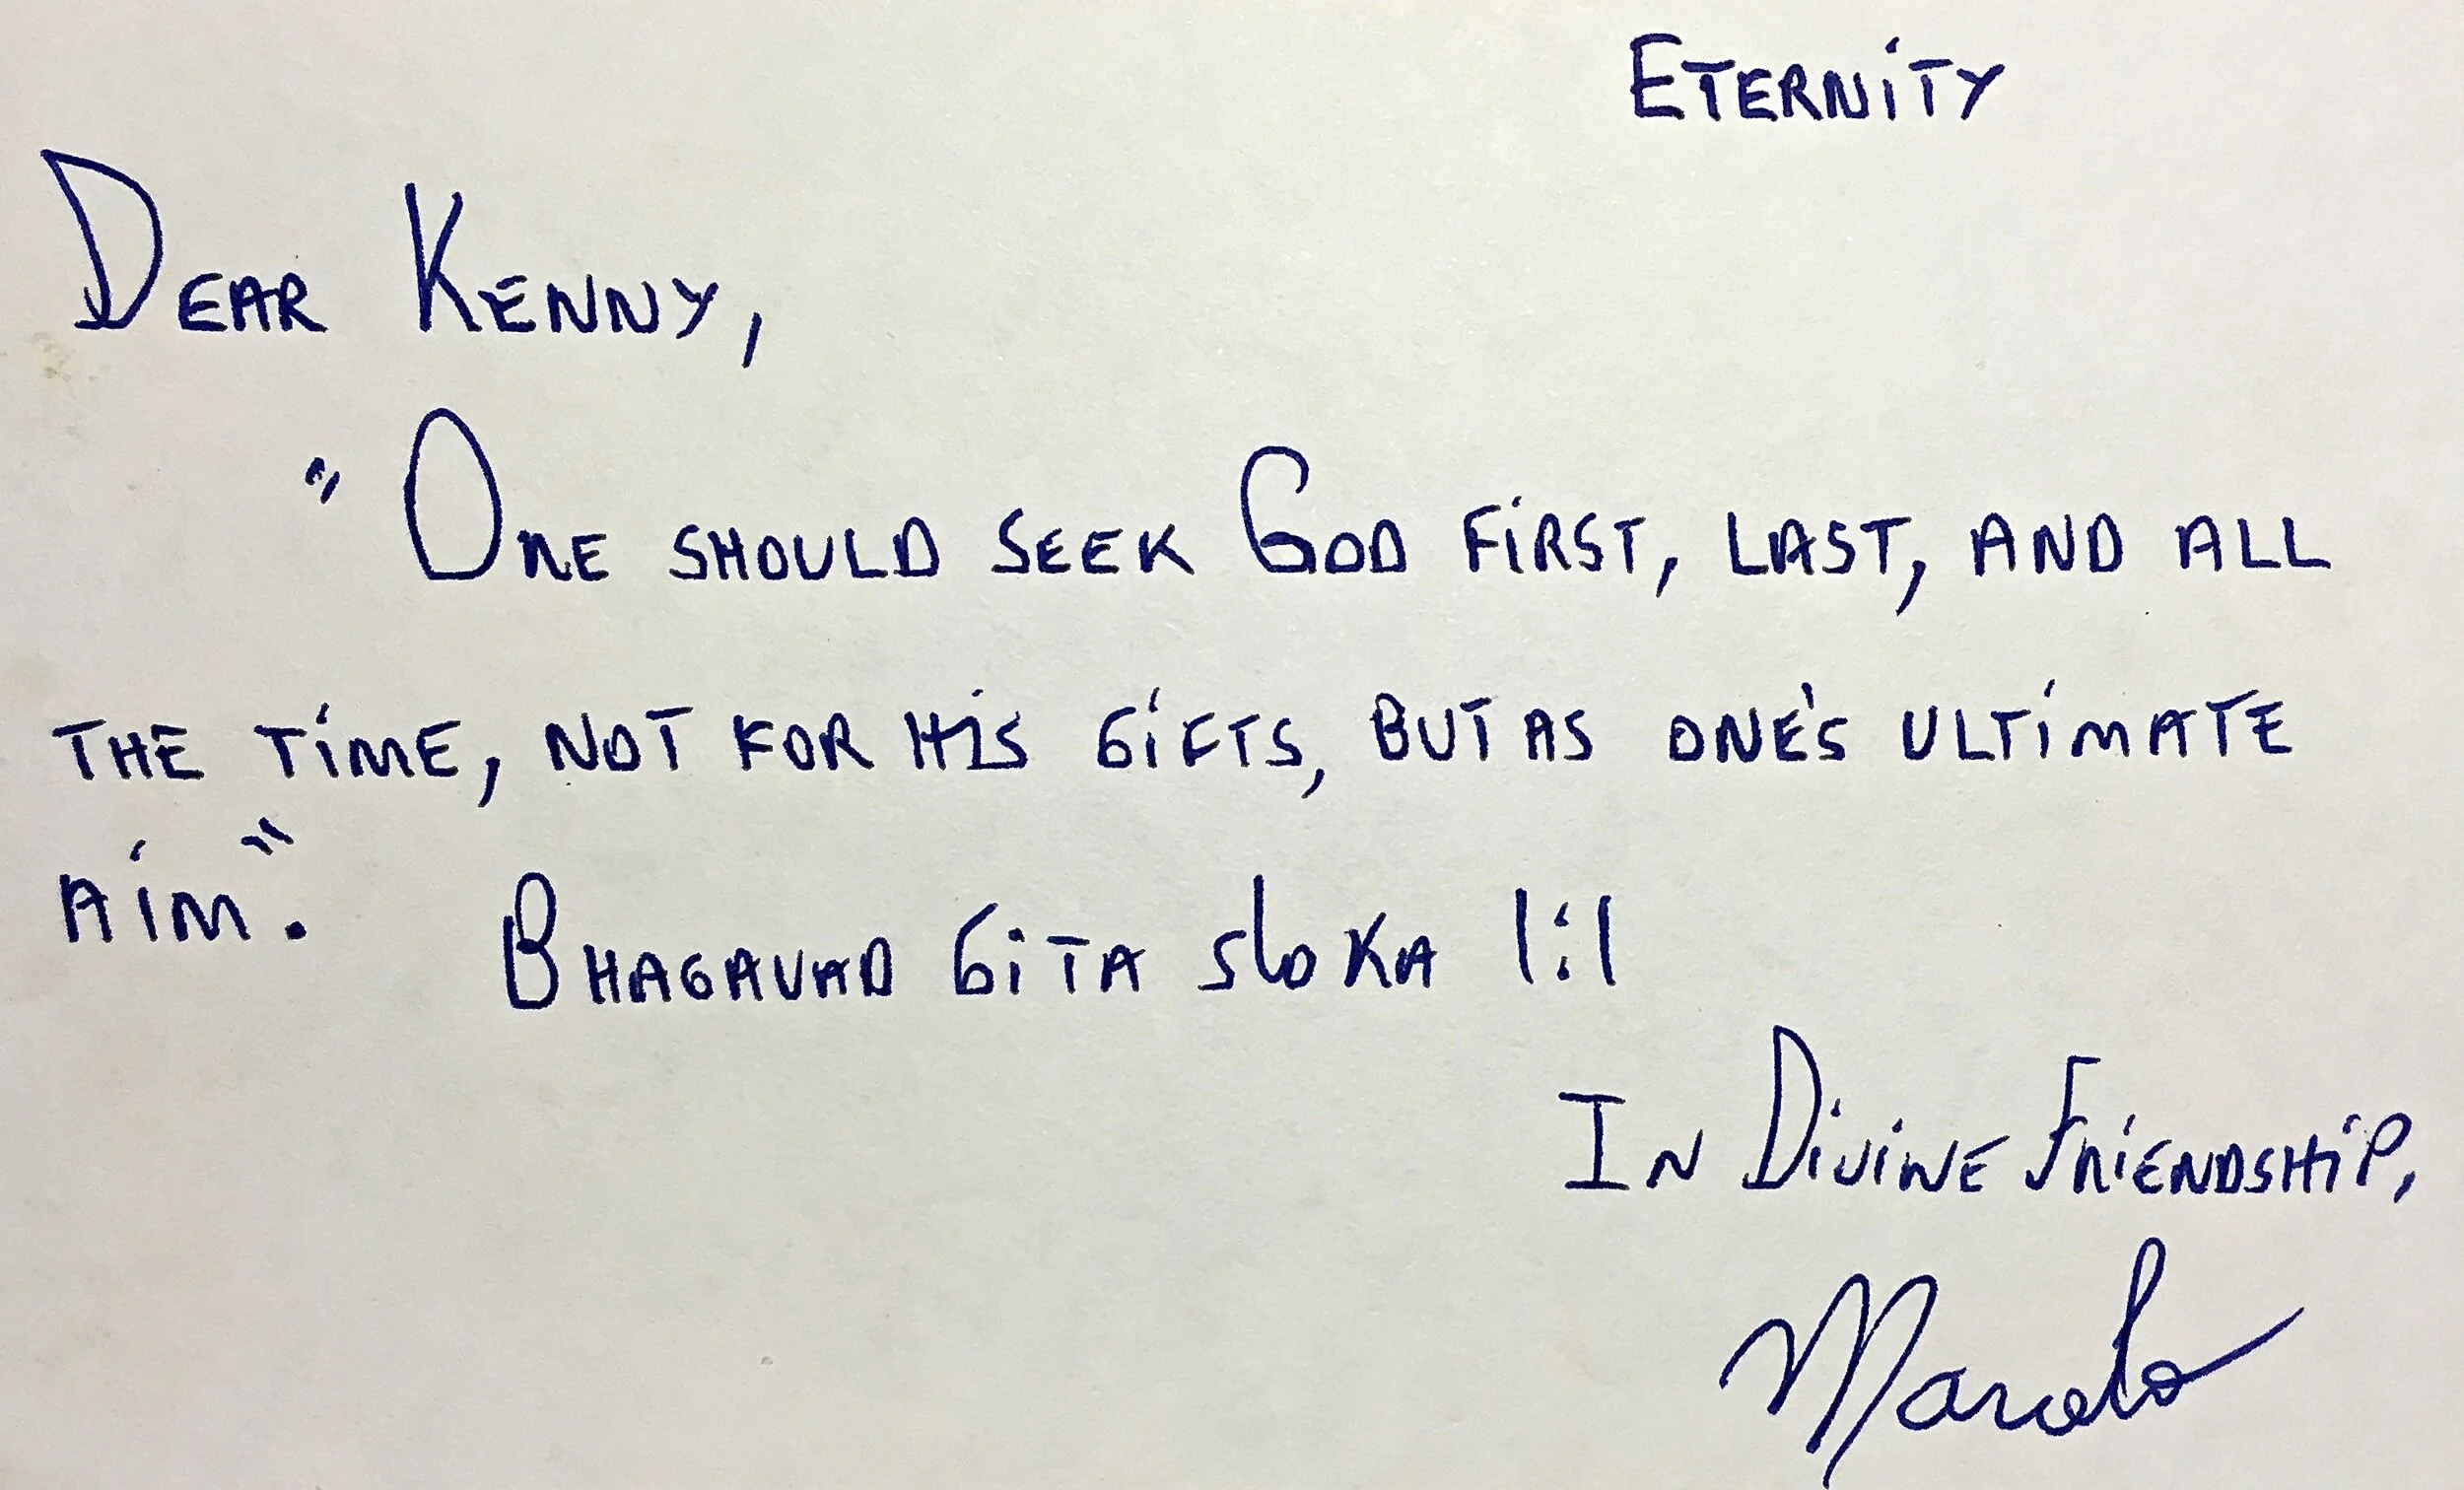 ETERNITY
DEAR KENNY,
"ONE SHOULD SEEK GOD FIRST, LAST, AND ALL
THE TIME, NOT FOR HIS GIFTS, BUT AS ONE'S ULTIMATE
AIM". BHAGAVAD GITA SloKA 1:1
IN DIVINE FRIENDSHIP,
Marcelo